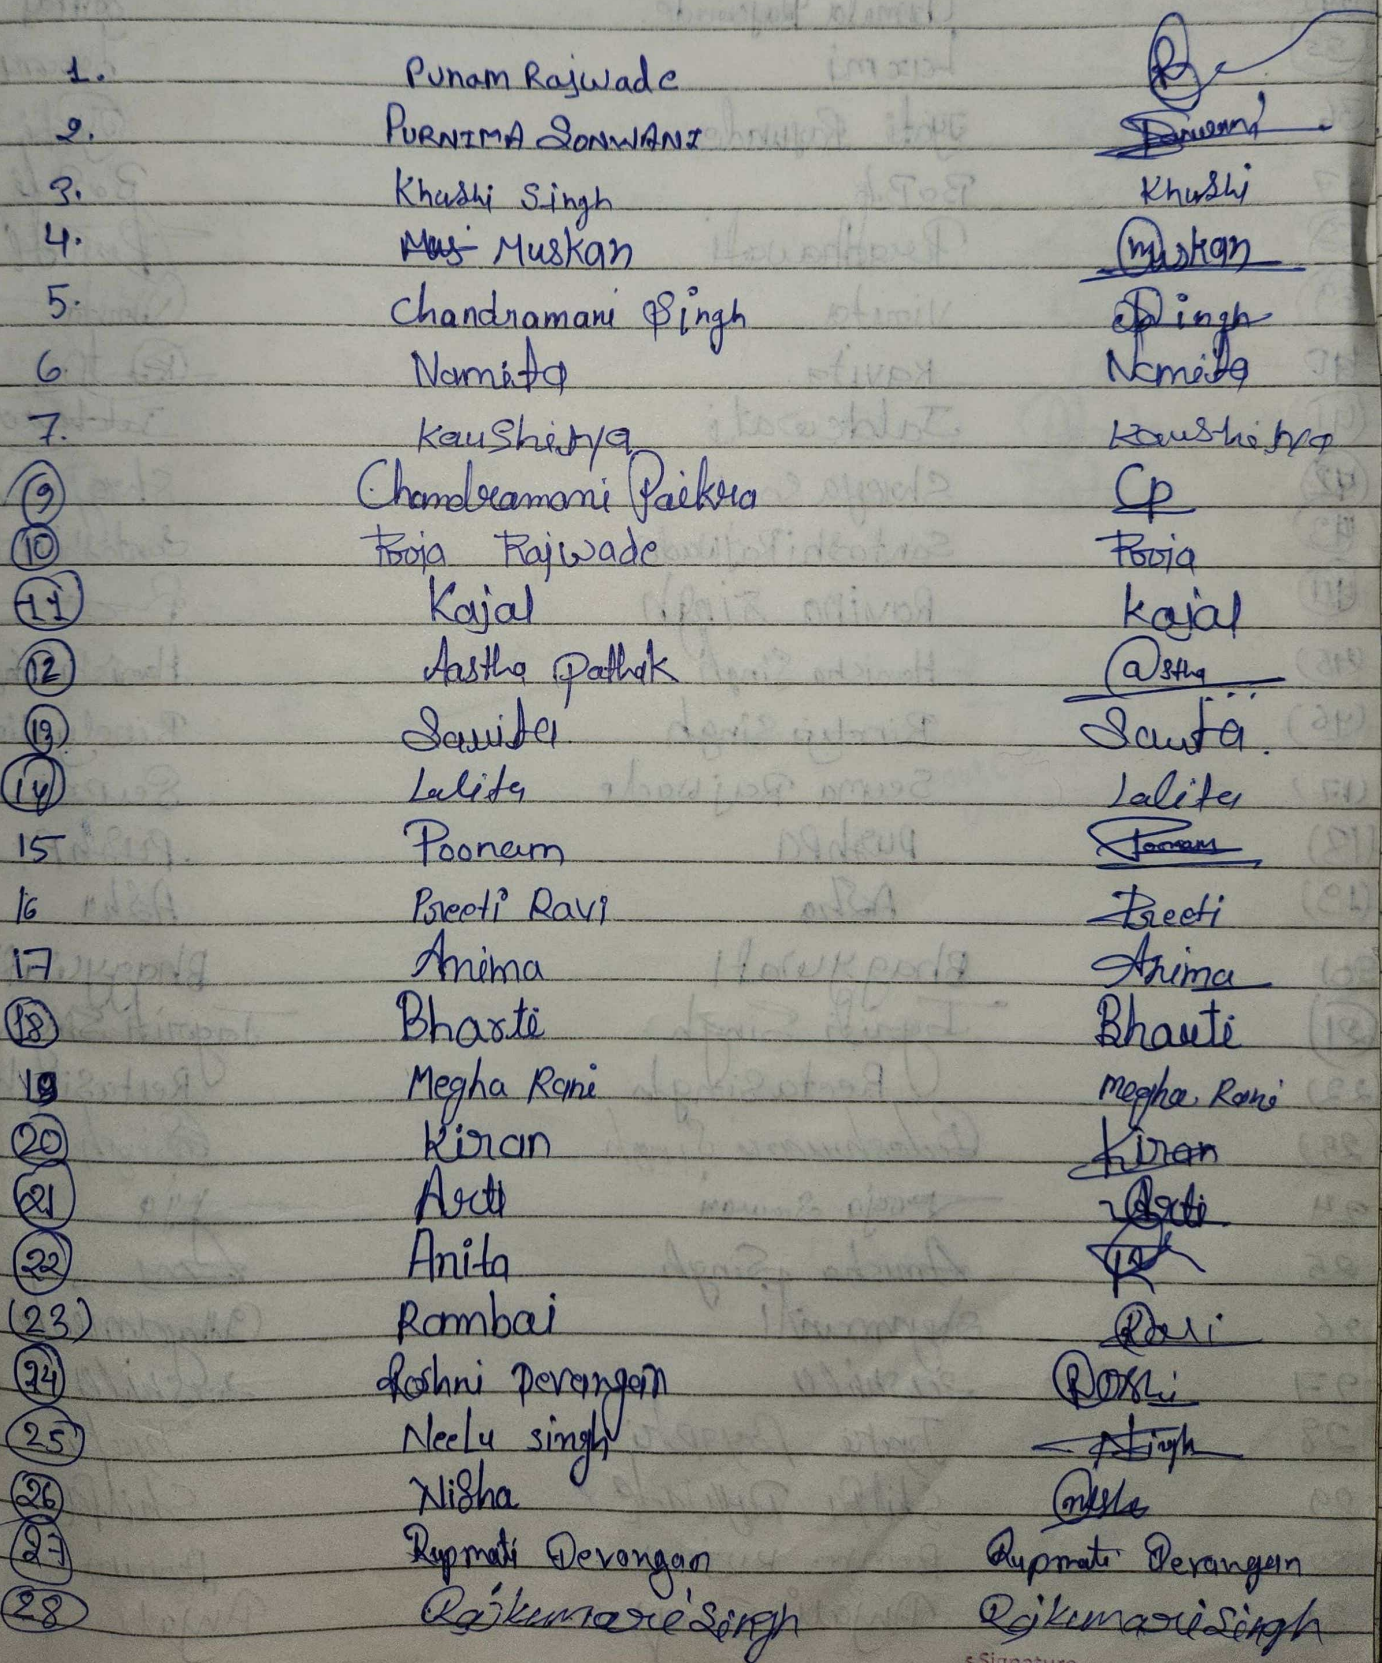 1. Punam Rajwade
2. PURNIMA SONWANI
3. Khushi Singh Khushi
4. Muskan Muskan
5. Chandramani Singh Singh
6 Namita Namita
7. Kaushilya Kaushilya
9 Chandramani Paikra Cp
10 Pooja Rajwade Pooja
11 Kajal Kajal
12 Aastha Pathak Astha
13 Savita Savita
14 Lalita Lalita
15 Poonam Poonam
16 Preeti Ravi Preeti
17 Anima Anima
18 Bharti Bharti
19 Megha Rani Megha Rani
20 Kiran Kiran
21 Arti Arti
22 Anita
(23) Rambai
24 Roshni Devangan Roshni
25 Neelu singh Singh
26 Nisha Nisha
27 Rupmati Devangan Rupmati Devangan
28 Rajkumari Singh Rajkumari Singh